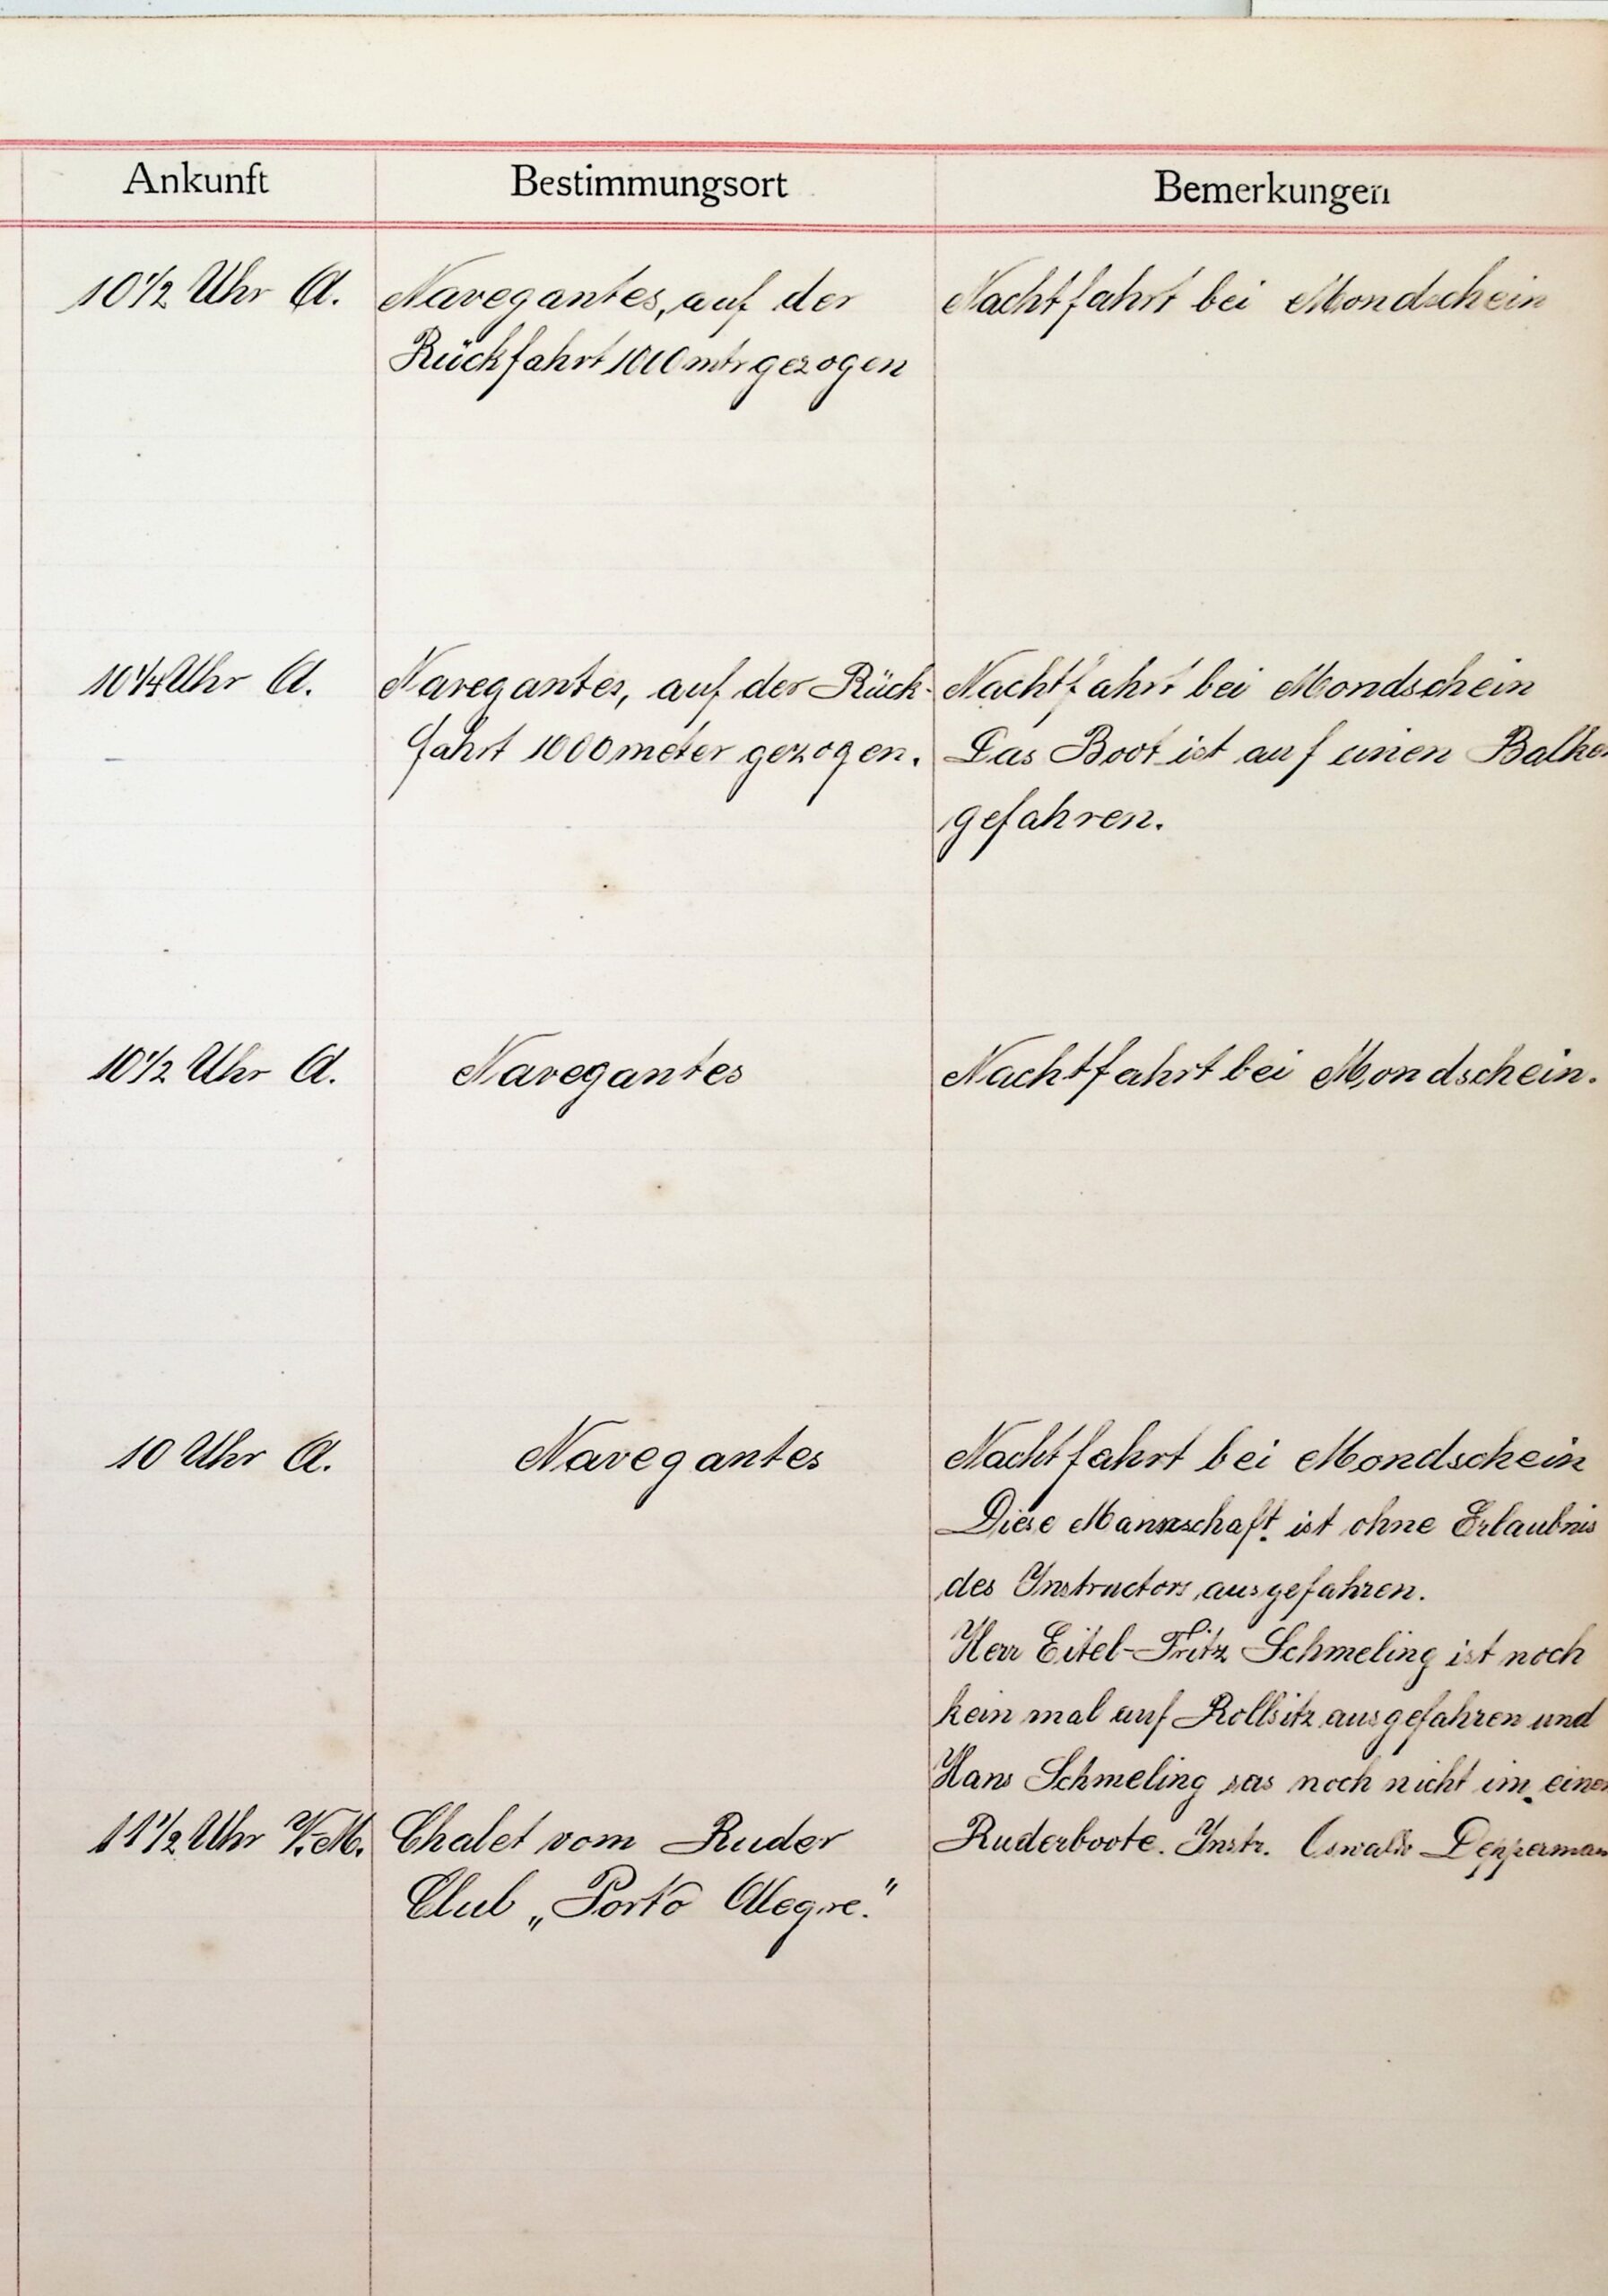 Ankunft Bestimmungsort Bemerkungen
10 1/2 Uhr A. Navegantes, auf der Nachtfahrt bei Mondschein
Rückfahrt 1000 mtr gezogen
10 1/4 Uhr A. Navegantes, auf der Rück- Nachtfahrt bei Mondschein
fahrt 1000 meter gezogen. Das Boot ist auf einen Balken
gefahren.
10 1/2 Uhr A. Navegantes Nachtfahrt bei Mondschein.
10 Uhr A. Navegantes Nachtfahrt bei Mondschein
Diese Mannschaft ist ohne Erlaubnis
des Instructors ausgefahren.
Herr Eitel-Fritz Schmeling ist noch
kein mal auf Rollsitz ausgefahren und
Hans Schmeling sas noch nicht im einen
11 1/2 Uhr V.M. Chalet vom Ruder Ruderboote. Instr. Oswaldo Depperman
Club „Porto Alegre."